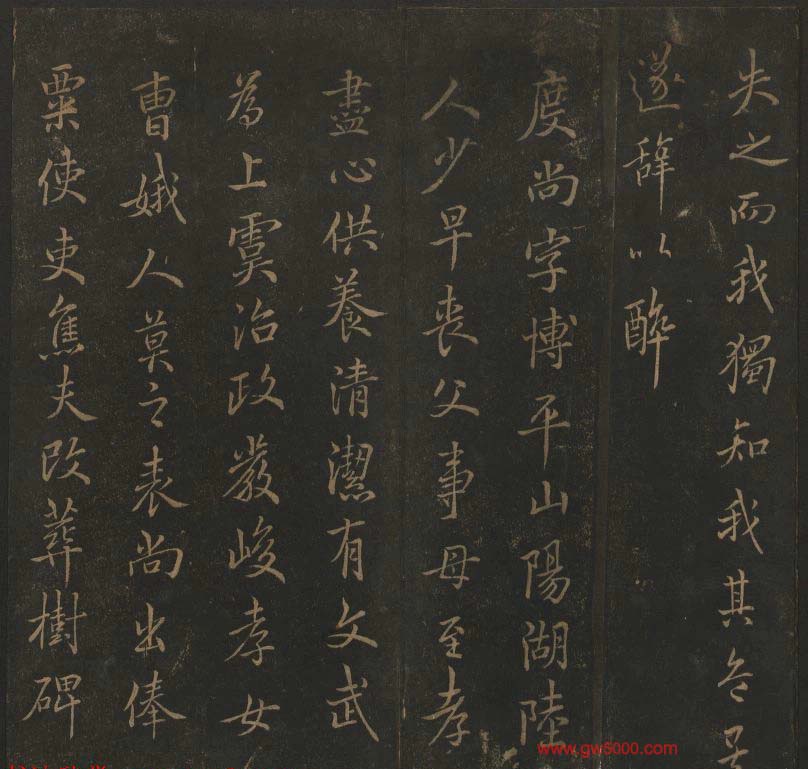 失之而我獨知我其不
遂辞以醉
度尚字博平山陽湖陸
人少早喪父事母至孝
盡心供養清潔有文武
為上虞治政嚴峻孝女
曹娥人莫之表尚出俸
粟使吏焦夫改葬樹碑
www.gw5000.com